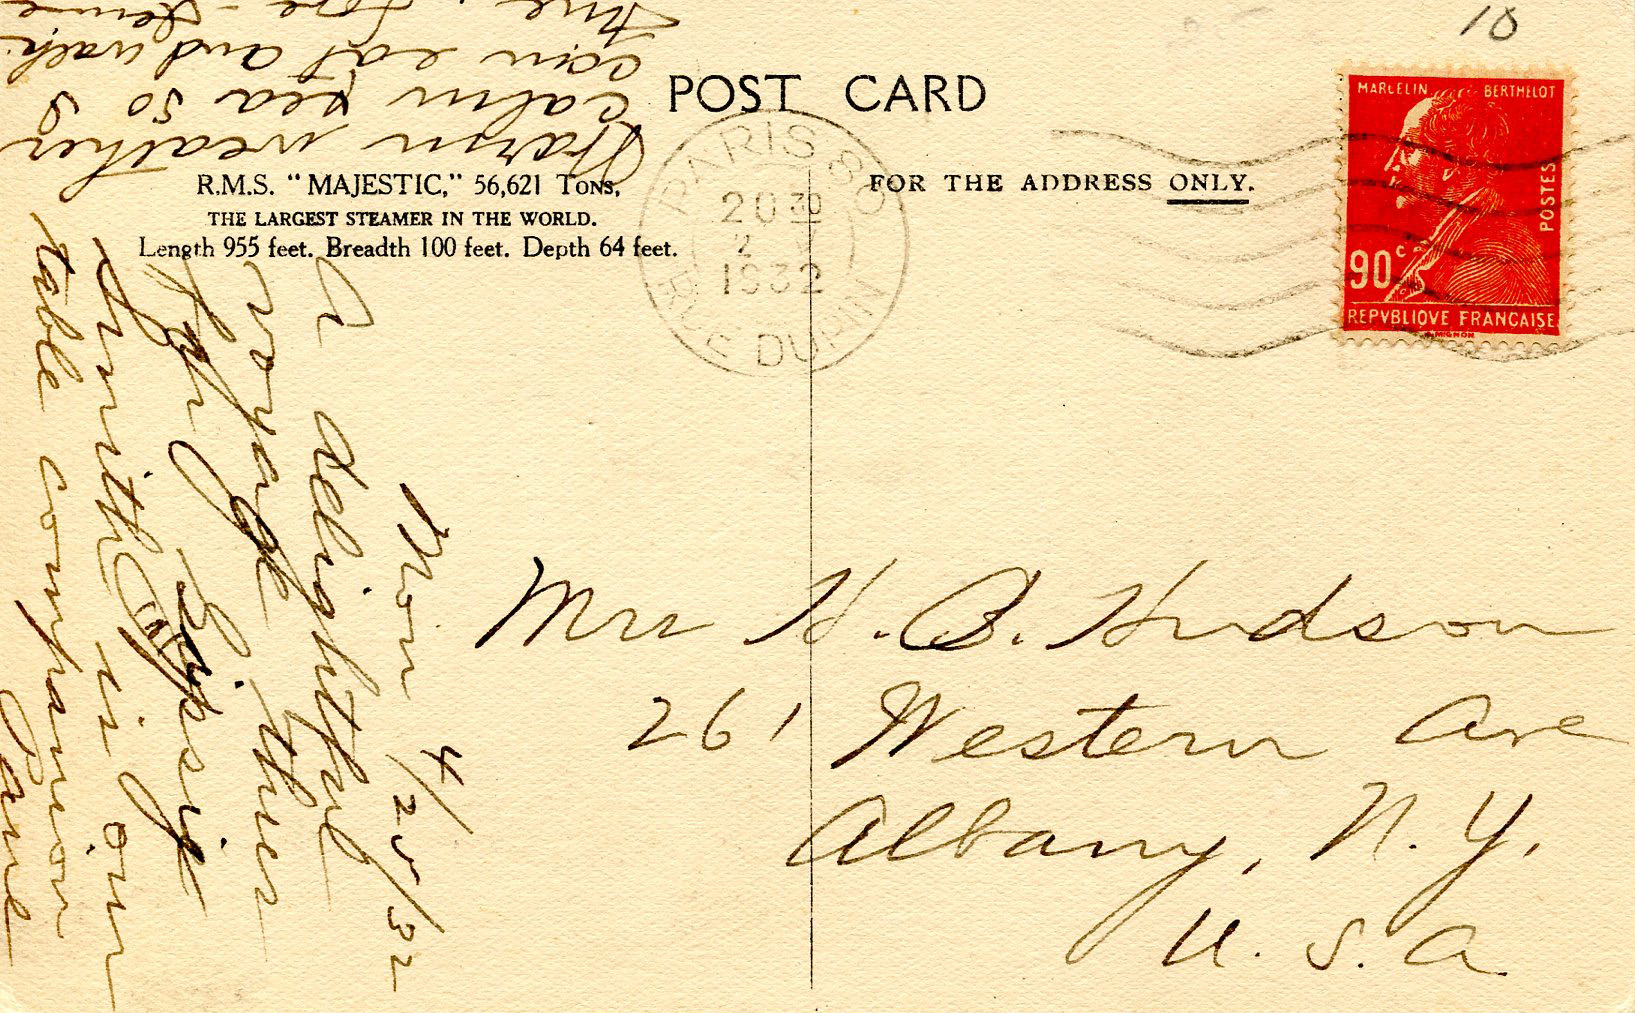 10
POST CARD
R.M.S. "MAJESTIC," 56,621 TONS,
THE LARGEST STEAMER IN THE WORLD.
Length 955 feet. Breadth 100 feet. Depth 64 feet.
FOR THE ADDRESS ONLY.
MARCELIN BERTHELOT
POSTES
90c
REPVBLIQVE FRANÇAISE
PARIS 80
20 30
2
1932
RUE DUPIN
Mon 4/25/32
A delightful
voyage thus
far. Gipsie
Smith is our
table companion
Warm weather
calm sea so I
can eat and walk
fine. Love - 
Mrs H. B. Hudson
261 Western Ave
Albany, N.Y.
U.S.A.